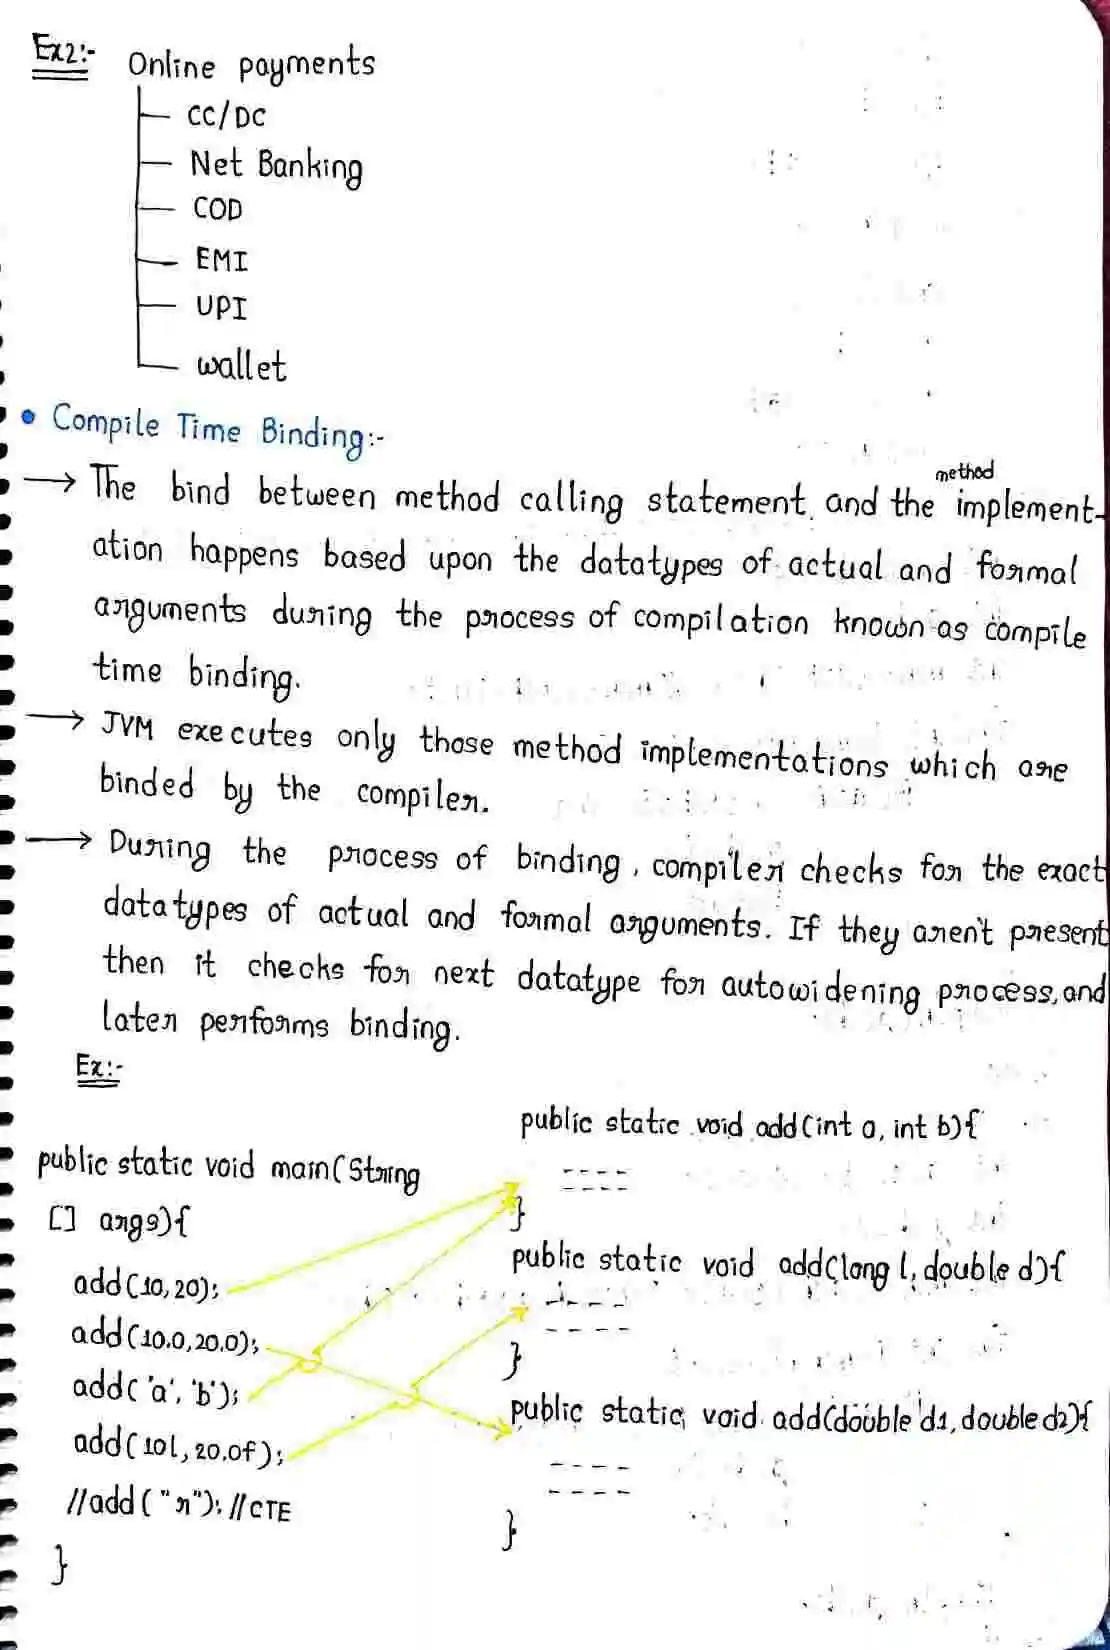 Ex2:- Online payments
CC/DC
Net Banking
COD
EMI
UPI
wallet
• Compile Time Binding:-
→ The bind between method calling statement and the method implement-
ation happens based upon the datatypes of actual and formal
arguments during the process of compilation known as compile
time binding.
→ JVM executes only those method implementations which are
binded by the compiler.
→ During the process of binding, compiler checks for the exact
datatypes of actual and formal arguments. If they aren't present
then it checks for next datatype for autowidening process, and
later performs binding.
Ex:-
public static void main(String
[] args){
add(10,20);
add(10.0,20.0);
add('a','b');
add(10l,20.0f);
//add("r"); //CTE
}
public static void add(int a, int b){
----
----
}
public static void add(long l, double d){
----
----
}
public static void add(double d1, double d2){
----
----
}